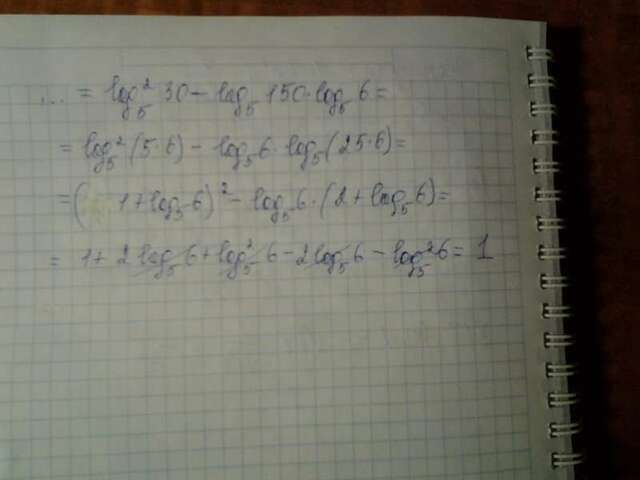 ... = log₅² 30 - log₅ 150 · log₅ 6 =
= log₅² (5·6) - log₅ 6 · log₅ (25·6) =
= (1 + log₅ 6)² - log₅ 6 · (2 + log₅ 6) =
= 1 + 2 log₅ 6 + log₅² 6 - 2 log₅ 6 - log₅² 6 = 1